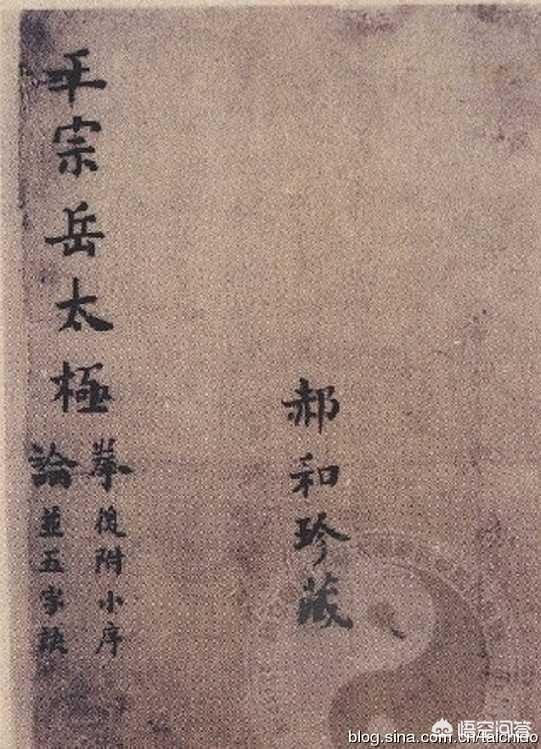 郝和珍藏
王宗岳太極
拳後附小序
論並五字訣
悟空问答
blog.sina.com.cn/taichidao